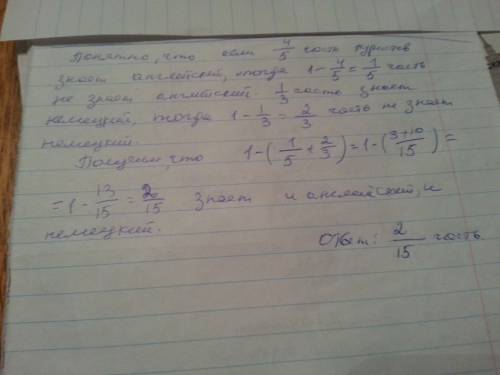 Понятно, что если 4/5 часть туристов
знает английский, тогда 1 - 4/5 = 1/5 часть
не знает английский. 1/3 часть знает
немецкий, тогда 1 - 1/3 = 2/3 часть не знает
немецкий.
Получим, что 1 - (1/5 + 2/3) = 1 - (3+10/15) =
= 1 - 13/15 = 2/15 знает и английский, и
немецкий.
Ответ: 2/15 часть